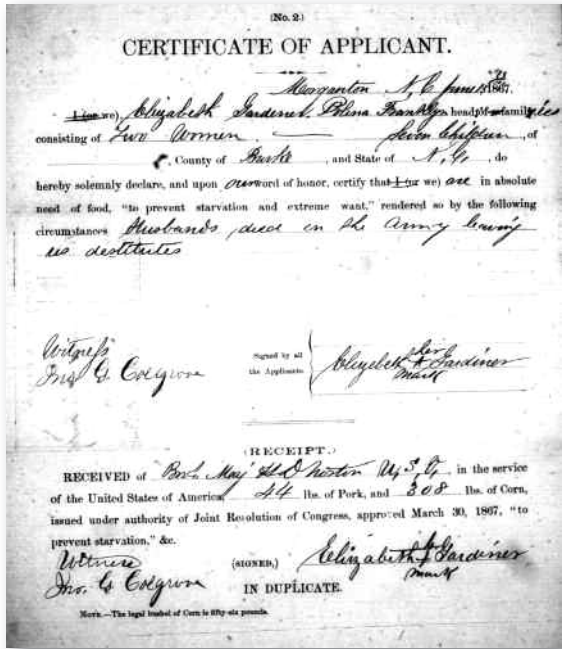 (No. 2.)
CERTIFICATE OF APPLICANT.
Morganton N, C, June 1867.
I (or we), Elizabeth Gardener, Polena Franklyn heads of families
consisting of Two Women — Seven Children, of
, County of Burke, and State of N, C, do
hereby solemnly declare, and upon our word of honor, certify that I (or we) are in absolute
need of food, "to prevent starvation and extreme want," rendered so by the following
circumstances Husbands, died in the Army leaving
us destitutes
Witness
Jno G Colgrove
Signed by all
the Applicants.
Elizebeth her x Gardiner
mark
(RECEIPT.)
RECEIVED of Bvt. Maj H D Norton U, S, V, in the service
of the United States of America, 44 lbs. of Pork, and 308 lbs. of Corn,
issued under authority of Joint Resolution of Congress, approved March 30, 1867, "to
prevent starvation," &c.
Witness
Jno. G Colgrove
(SIGNED,)
Elizabeth x Gardiner
mark
IN DUPLICATE.
NOTE.—The legal bushel of Corn is fifty-six pounds.